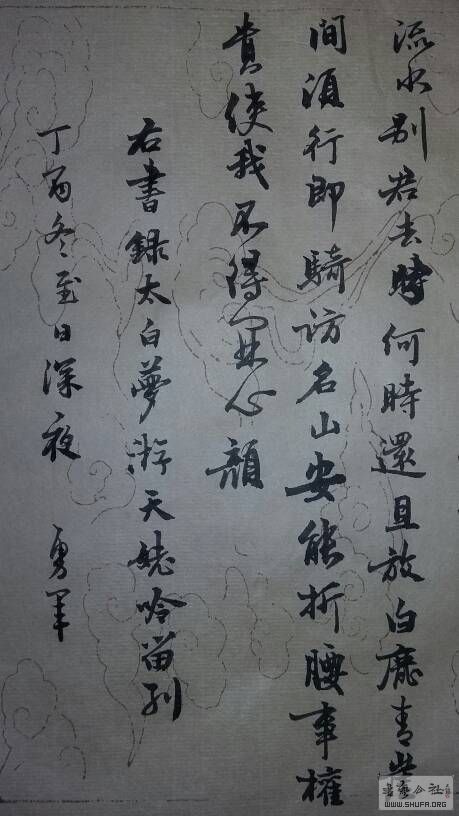 流水别君去時何時還且放白鹿青崖
間須行即騎訪名山安能折腰事權
貴使我不得開心顔
右書録太白夢游天姥吟留别
丁酉冬至日深夜 勇軍
WWW.SHUFA.ORG